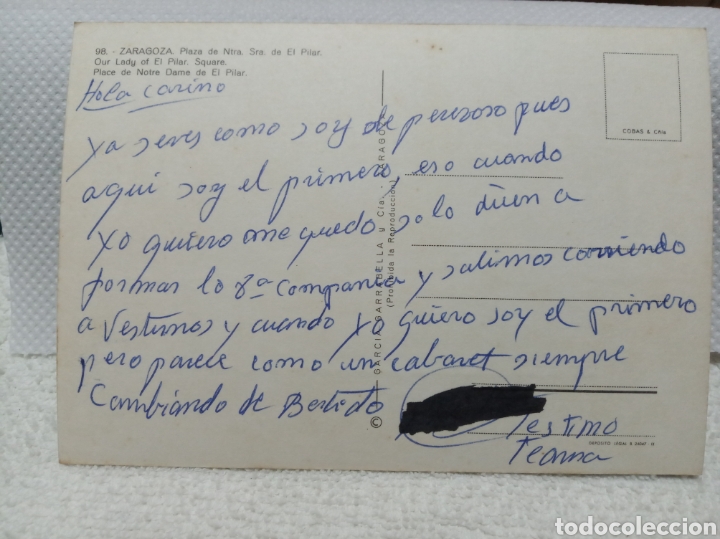 98. - ZARAGOZA. Plaza de Ntra. Sra. de El Pilar.
Our Lady of El Pilar. Square.
Place de Notre Dame de El Pilar.
Hola cariño
Ya seves como soy de perezoso pues
aqui soy el primero, eso cuando
Yo quiero me quedo solo disen a
formar la 8ª Compañia y salimos corriendo
a Vestirnos y cuando Yo quiero soy el primero
pero parece como un cabaret siempre
Cambiando de Bestido
Testimo
© GARCIA GARRABELLA y Cía. - ZARAGOZA
(Prohibida la Reproducción)
COBAS & CAN
DEPOSITO LEGAL B
todocoleccion